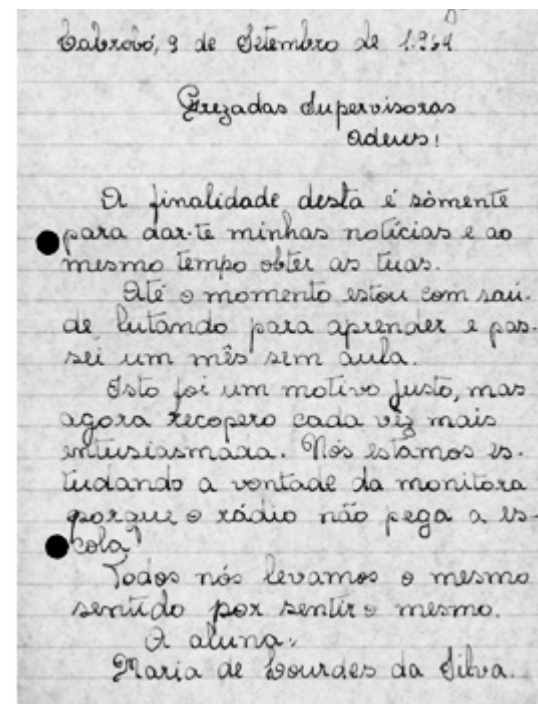 Cabrobó, 9 de Setembro de 1.964
Prezadas Supervisoras
adeus!
A finalidade desta é sòmente
para dar-te minhas notícias e ao
mesmo tempo obter as tuas.
Até o momento estou com saú-
de lutando para aprender e pas-
sei um mês sem aula.
Isto foi um motivo justo, mas
agora recopero cada vêz mais
entusiasmada. Nós estamos es-
tudando a vontade da monitora
porque o rádio não pega a es-
cola!
Todos nós levamos o mesmo
sentido por sentir o mesmo.
A aluna:
Maria de Lourdes da Silva.